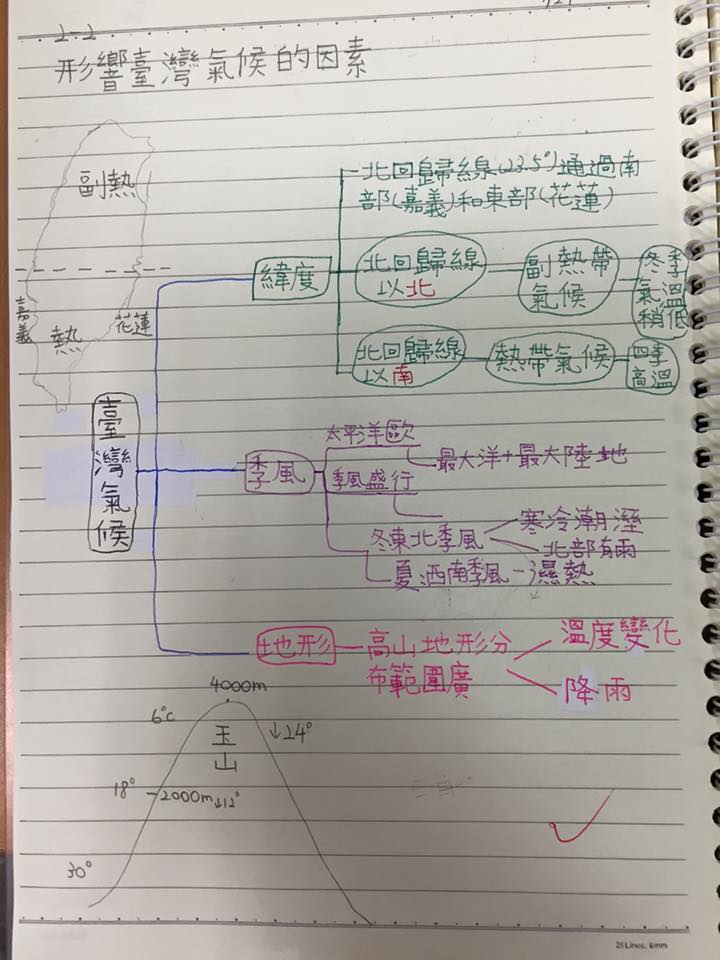 2-2
形響臺灣氣候的因素
副熱
嘉義
熱
花蓮
臺灣氣候
緯度
北回歸線(23.5°)通過南
部(嘉義)和東部(花蓮)
北回歸線
以北
副熱帶
氣候
冬季
氣溫
稍低
北回歸線
以南
熱帶氣候
四季
高溫
季風
太平洋歐
最大洋+最大陸地
季風盛行
冬東北季風
寒冷潮溼
北部有雨
夏西南季風-濕熱
地形
高山地形分
布範圍廣
溫度變化
降雨
4000m
6°c
玉山
↓24°
18°
2000m↓12°
30°
26Lines, 8mm